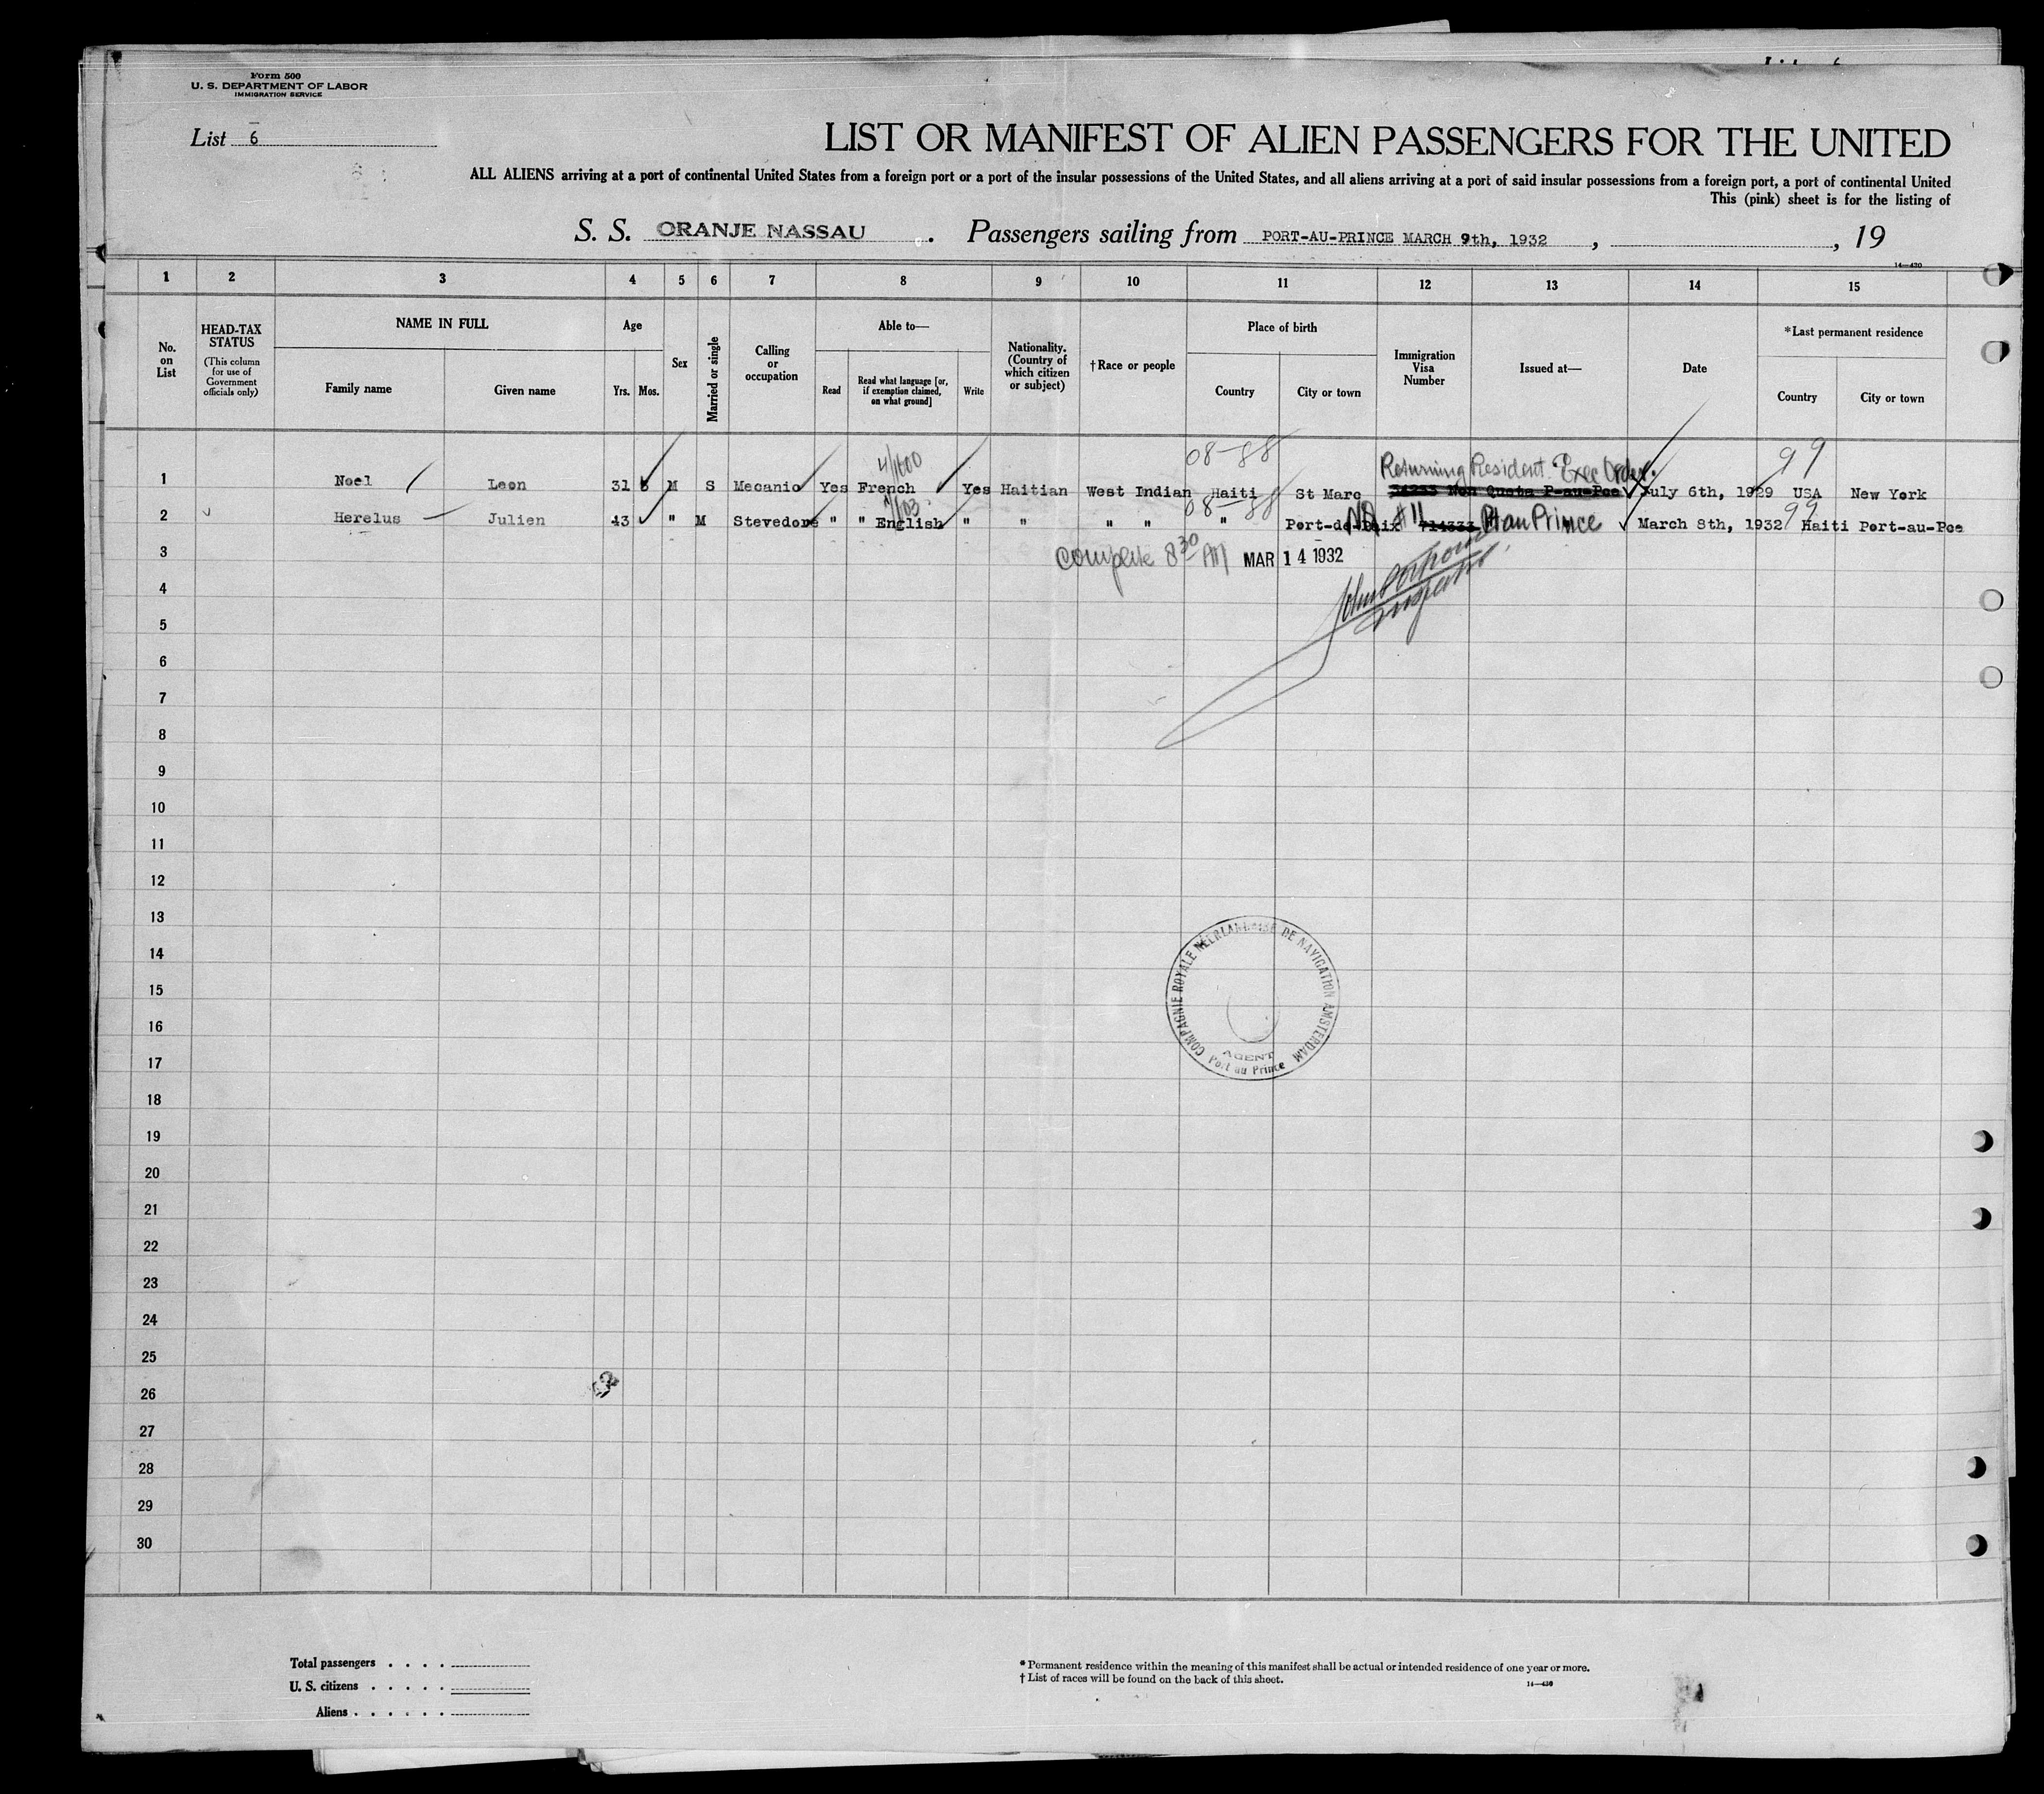 Form 500
U. S. DEPARTMENT OF LABOR
IMMIGRATION SERVICE
List 6
LIST OR MANIFEST OF ALIEN PASSENGERS FOR THE UNITED
ALL ALIENS arriving at a port of continental United States from a foreign port or a port of the insular possessions of the United States, and all aliens arriving at a port of said insular possessions from a foreign port, a port of continental United
This (pink) sheet is for the listing of
S. S. ORANJE NASSAU. Passengers sailing from PORT-AU-PRINCE MARCH 9th, 1932, , 19
14—430
1 2 3 4 5 6 7 8 9 10 11 12 13 14 15
No. on List
HEAD-TAX STATUS
(This column for use of Government officials only)
NAME IN FULL
Family name
Given name
Age
Yrs. Mos.
Sex
Married or single
Calling or occupation
Able to—
Read
Read what language [or, if exemption claimed, on what ground]
Write
Nationality. (Country of which citizen or subject)
†Race or people
Place of birth
Country
City or town
Immigration Visa Number
Issued at—
Date
*Last permanent residence
Country
City or town
08-88 99
4/1600 Returning Resident Exec Order.
1 Noel Leon 31 8 M S Mecanic Yes French Yes Haitian West Indian Haiti St Marc 34233 Non Quota P-au-Pce July 6th, 1929 USA New York
08-88 99
2 Herelus Julien 43 " M Stevedore " " English " " " " " Port-de-Paix NQ #11 714333 Pt au Prince March 8th, 1932 Haiti Port-au-Pce
3 Complete 8 30 AM MAR 14 1932
4
5
6
7
8
9
10
11
12
13
14
15
16
17
18
19
20
21
22
23
24
25
26
27
28
29
30
COMPAGNIE ROYALE NEERLANDAISE DE NAVIGATION AMSTERDAM
AGENT
Port au Prince
Total passengers . . . .
U. S. citizens . . . . .
Aliens . . . . . .
* Permanent residence within the meaning of this manifest shall be actual or intended residence of one year or more.
† List of races will be found on the back of this sheet.
14—430